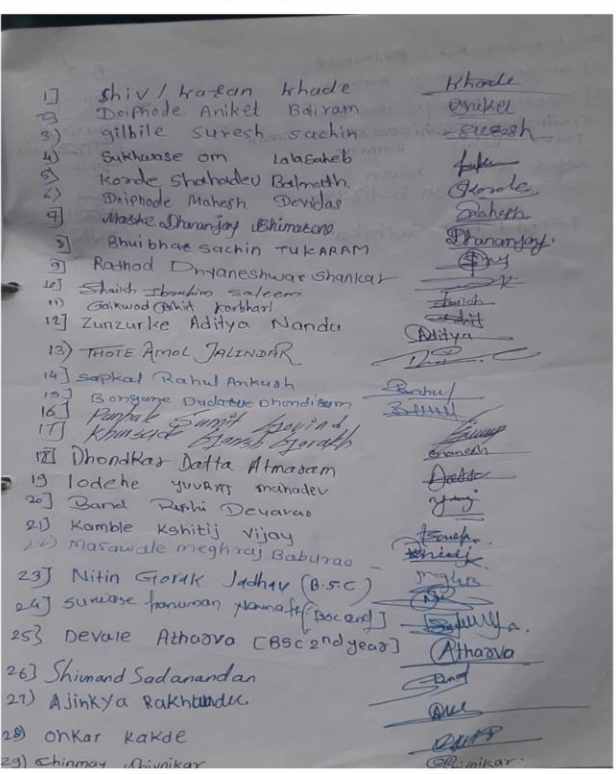 1] Shiv/ratan Khade Khade
2] Doiphode Aniket Baliram Aniket
3) gilbile suresh sachin Suresh
4) Sukhwase om Lalasaheb
5) Korde Shahadev Balnath. Korde
6) Doiphode Mahesh Devidas Mahesh
7] Maske Dhananjay Bhimarao Dhananjay.
8] Bhuibhar Sachin TUKARAM
9] Rathod Dnyaneshwar Shankar
10] Shaikh Ibrahim Saleem Shaikh
11) Gaikwad Karbhari
12] Zunzurke Aditya Nandu Aditya
13) THOTE AMOL JALINDAR
14] Sapkal Rahul Ankush Rahul
15] Bongane Dhondiram
16] Panhale Sumit Govind
17] Khursade Ganesh Gorakh Ganesh
18] Dhondkar Datta Atmaram Datta
19 lodehe YUVRAJ mahadev yuvraj
20] Band Rushi Devarao
21] Kamble Kshitij Vijay Kshitij
22) Masawale meghraj Baburao -
23] Nitin Gorak Jadhav (B.S.C)
24] Surwase hanuman [BSC 2nd]
25} Devale Atharva [BSC 2nd year] Atharva
26] Shimand Sadanandan
27) AJinkya
28) Onkar Kakde
29) Chinmay Shivnikar Shivnikar.